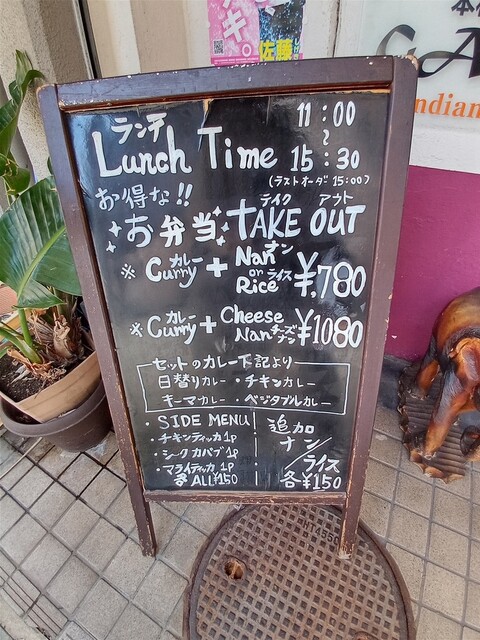 キ。
佐藤
本格
GA
Indian
ランチ
Lunch Time 11:00
~
15:30
(ラストオーダ 15:00)
お得な!!
テイク アウト
お弁当 TAKE OUT
カレー ナン
※Curry + Nan or Rice ライス ¥,780
カレー
※Curry + Cheese Nan チーズナン ¥1080
セットのカレー下記より
日替りカレー・チキンカレー
キーマカレー・ベジタブルカレー
・SIDE MENU
・チキンティッカ 1P
・シークカバブ 1P
・マライティッカ 1P
ALL ¥150
追加
ナン/ライス
各¥150